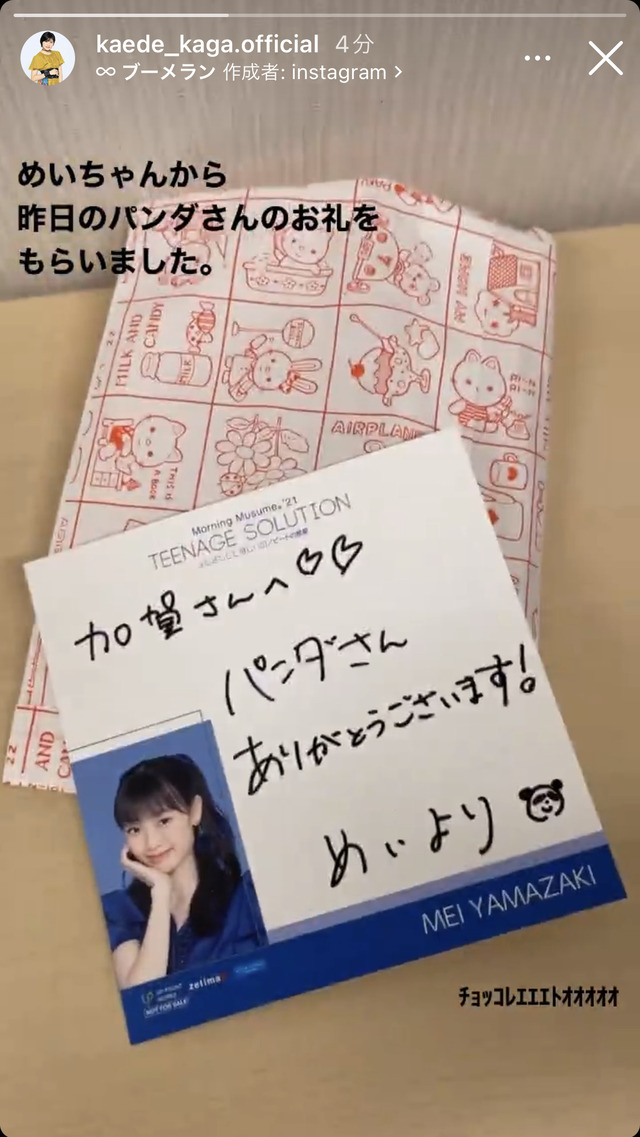 kaede_kaga.official 4分
∞ ブーメラン 作成者: instagram >
めいちゃんから
昨日のパンダさんのお礼を
もらいました。
MILK AND
CANDY
MILK
THIS IS
A BOOK
AIRPLANE
22
AND
Morning Musume。'21
TEENAGE SOLUTION
加賀さんへ♡♡
パンダさん
ありがとうございます!
めいより
MEI YAMAZAKI
UP-FRONT
WORKS
zetima
NOT FOR SALE
ﾁｮｯｺﾚｴｴｴﾄｵｵｵｵｵ